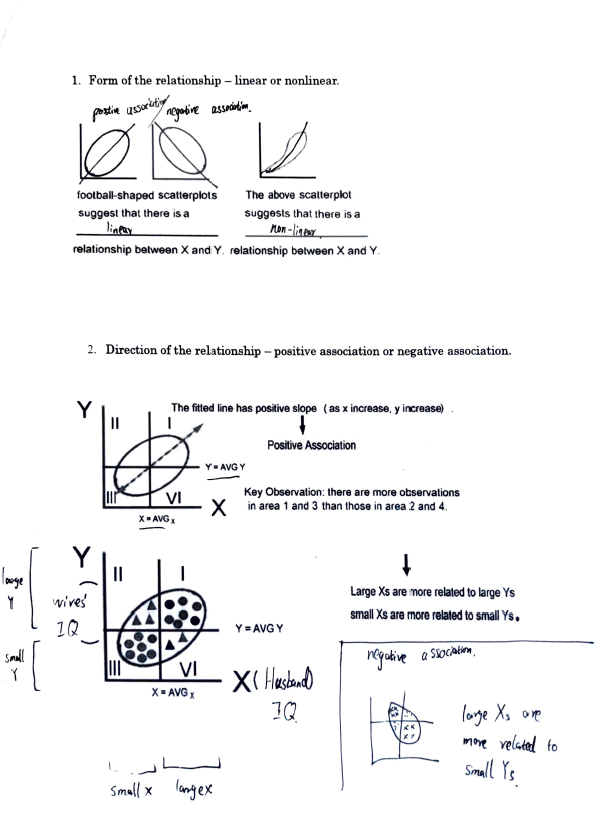 1. Form of the relationship – linear or nonlinear.
positive association/negative association.
football-shaped scatterplots
suggest that there is a
linear
relationship between X and Y.
The above scatterplot
suggests that there is a
non-linear
relationship between X and Y.
2. Direction of the relationship – positive association or negative association.
Y
II
I
III
VI
X
Y = AVG Y
X = AVG X
The fitted line has positive slope ( as x increase, y increase) .
Positive Association
Key Observation: there are more observations
in area 1 and 3 than those in area 2 and 4.
Large Xs are more related to large Ys
small Xs are more related to small Ys.
large
Y
small
Y
wives'
IQ
Y
II
I
III
VI
Y = AVG Y
X = AVG X
X (Husband)
IQ
small x
large x
negative association.
x x
x x
x x
x Y
large Xs are
more related to
small Ys